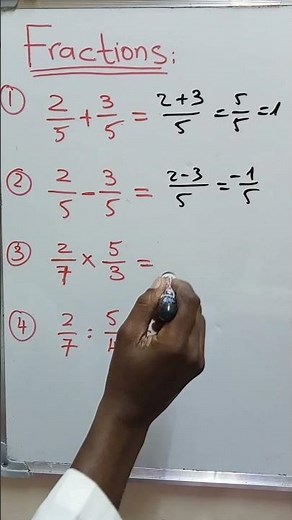 Fractions:
① 2/5 + 3/5 = 2+3/5 = 5/5 = 1
② 2/5 - 3/5 = 2-3/5 = -1/5
③ 2/7 × 5/3 =
④ 2/7 : 5/